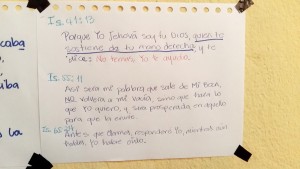 caba
a
iba
lo
Is. 41:13
Porque Yo Jehová soy tu Dios, quien te
sostiene de tu mano derecha, y te
dice: No temas, Yo te ayudo.
Is. 55:11
Así será mi palabra que sale de Mi Boca,
NO volverá a mí vacía, sino que hará lo
que Yo quiero, y será prosperada en aquello
para que la envié.
Is. 65:24
Antes que clamen, responderé Yo, mientras aún
hablan, Yo habré oído.